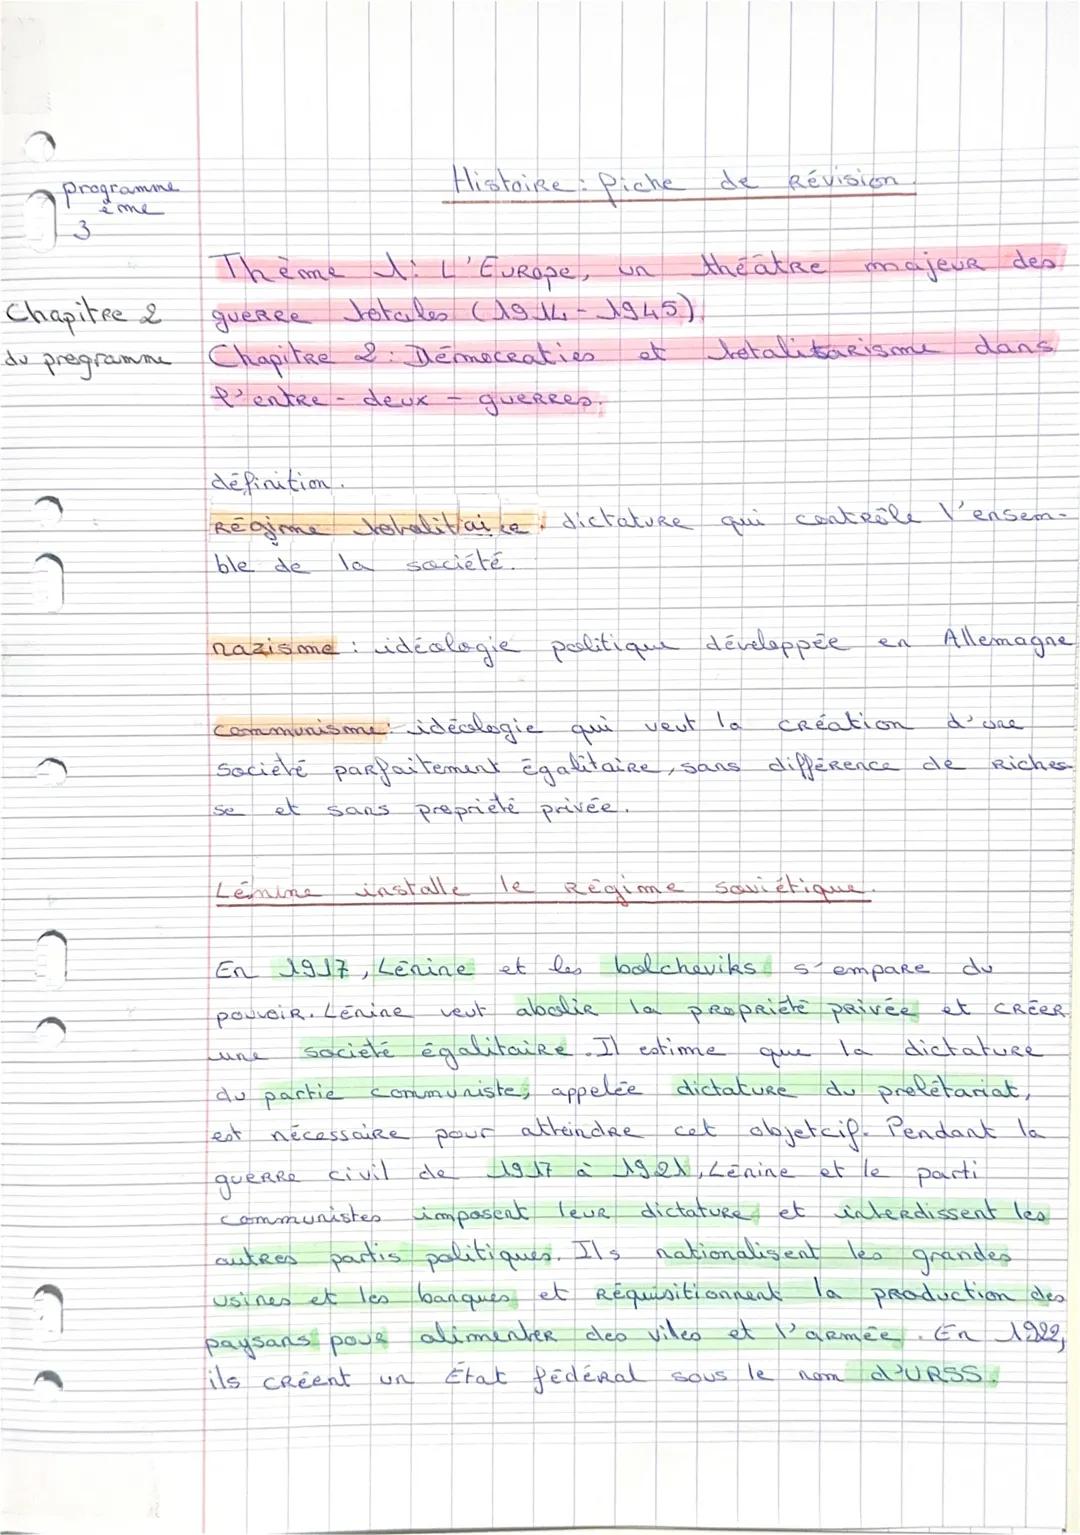 Histoire : fiche de Révision.
programme
ème
3
Thème 1 : L'Europe, un théâtre majeur des
guerre totales (1914-1945).
Chapitre 2
du programme
Chapitre 2 : Démocraties et totalitarisme dans
l'entre-deux-guerres.
définition.
Régime totalitaire : dictature qui contrôle l'ensem-
ble de la société.
nazisme : idéologie politique développée en Allemagne
communisme : idéologie qui veut la création d'une
société parfaitement égalitaire, sans différence de riches
se et sans propriété privée.
Lénine installe le Régime soviétique.
En 1917, Lénine et les bolcheviks s'empare du
pouvoir. Lénine veut abolir la propriété privée et créer
une société égalitaire. Il estime que la dictature
du partie communiste, appelée dictature du prolétariat,
est nécessaire pour atteindre cet objetcif. Pendant la
guerre civil de 1917 à 1921, Lénine et le parti
communistes imposent leur dictature et interdissent les
autres partis politiques. Ils nationalisent les grandes
usines et les banques et réquisitionnent la production des
paysans pour alimenter des viles et l'armée. En 1922,
ils créent un État fédéral sous le nom d'URSS.